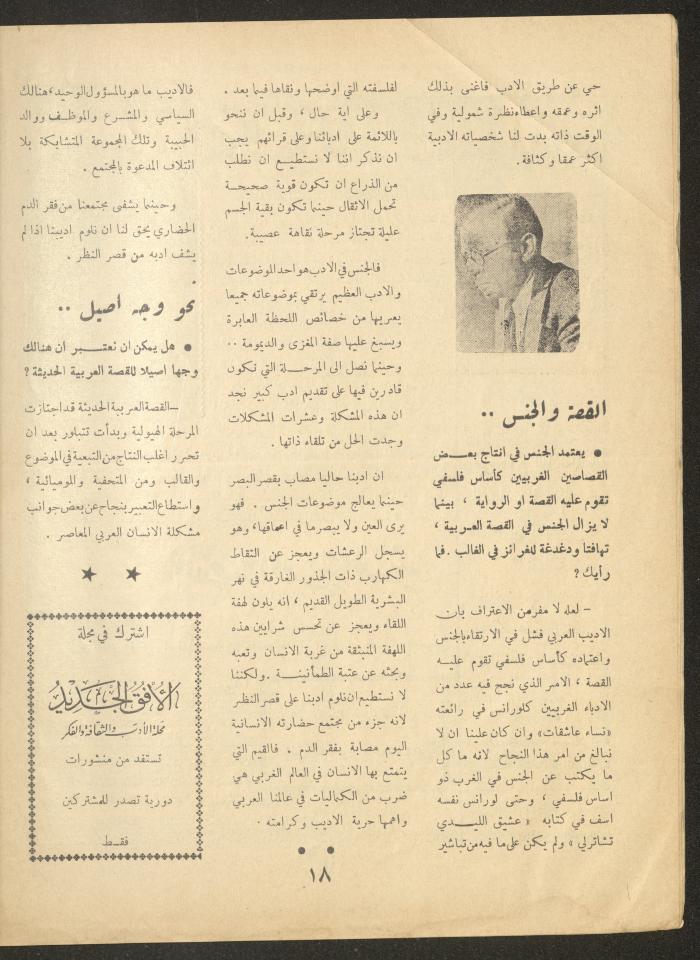 حي عن طريق الادب فاغنى بذلك
اثره وعمقه واعطاه نظرة شمولية وفي
الوقت ذاته بدت لنا شخصياته الادبية
اكثر عمقا وكثافة.
القصة والجنس ..
● يعتمد الجنس في انتاج بعــض
القصاصين الغربيين كأساس فلسفي
تقوم عليه القصة او الرواية ، بينما
لا يزال الجنس في القصة العـربية ،
تهافتا ودغدغة للغرائز في الغالب . فما
رأيك ؟
– لعله لا مفر من الاعتراف بان
الاديب العربي فشل في الارتقاء بالجنس
واعتماده كأساس فلسفي تقوم عليــه
القصة ، الامر الذي نجح فيه عدد من
الادباء الغربيين كلورانس في رائعته
«نساء عاشقات» وان كان علينا ان لا
نبالغ من امر هذا النجاح لانه ما كل
ما يكتب عن الجنس في الغرب ذو
اساس فلسفي ، وحتى لورانس نفسه
اسف في كتابه « عشيق الليــدي
تشاترلي » ولم يكن على ما فيه من تباشير
لفلسفته التي اوضحها ونقاها فيما بعد .
وعلى اية حال ، وقبل ان ننحو
باللائمة على ادبائنا وعلى قرائهم يجب
ان نذكر اننا لا نستطيــع ان نطلب
من الذراع ان تكون قوية صحيحــة
تحمل الاثقال حينما تكون بقية الجسم
عليلة تجتاز مرحلة نقاهة عصيبة.
فالجنس في الادب هو احد الموضوعات
والادب العظيم يرتقي بموضوعاته جميعا
يعريها من خصائص اللحظة العابرة
ويسبغ عليها صفة المغزى والديمومة ..
وحينما نصل الى المرحــلة التي نكون
قادرين فيها على تقديم ادب كبير نجد
ان هذه المشكلة وعشرات المشكلات
وجدت الحل من تلقاء ذاتها .
ان ادبنا حاليا مصاب بقصر البصر
حينما يعالج موضوعات الجنس . فهو
يرى العين ولا يبصر ما في اعماقها، وهو
يسجل الرعشات ويعجز عن التقاط
الكهارب ذات الجذور الغارقة في نهر
البشرية الطويل القديم ، انه يلون لهفة
اللقاء ويعجز عن تحسس شرايين هذه
اللهفة المنبثقة من غربة الانسان وتعبه
وبحثه عن عتبة الطمأنينــة .ولكننا
لا نستطيع ان نلوم ادبنا على قصر النظر
لانه جزء من مجتمع حضارته الانسانية
اليوم مصابة بفقر الدم . فالقيم التي
يتمتع بها الانسان في العالم الغربي هي
ضرب من الكماليات في عالمنا العربي
واهمها حرية الاديب وكرامته .
فالاديب ما هو بالمسؤول الوحيد،هنالك
السياسي والمشــرع والموظــف ووالد
الحبيبة وتلك المجموعة المتشابكة بلا
ائتلاف المدعوة بالمجتمع .
وحينما يشفى مجتمعنا من فقر الدم
الحضاري يحق لنا ان نلوم اديبنا اذا لم
يشف ادبه من قصر النظر .
نحو وجه اصيل ..
● هل يمكن ان نعتبــر ان هنالك
وجها اصيلا للقصة العربية الحديثة ؟
–القصة العربية الحديثة قد اجتازت
المرحلة الهيولية وبدأت تتبلور بعد ان
تحرر اغلب النتاج من التبعية في الموضوع
والقالب ومن المتحفية والموميائية ،
واستطاع التعبير بنجاح عن بعض جوانب
مشكلة الانسان العربي المعاصر .
★ ★
اشترك في مجلة
الأفق الجديد
مجلة الأدب والثقافة والفكر
تستفد من منشورات
دورية تصدر للمشتركين
فقــط
١٨